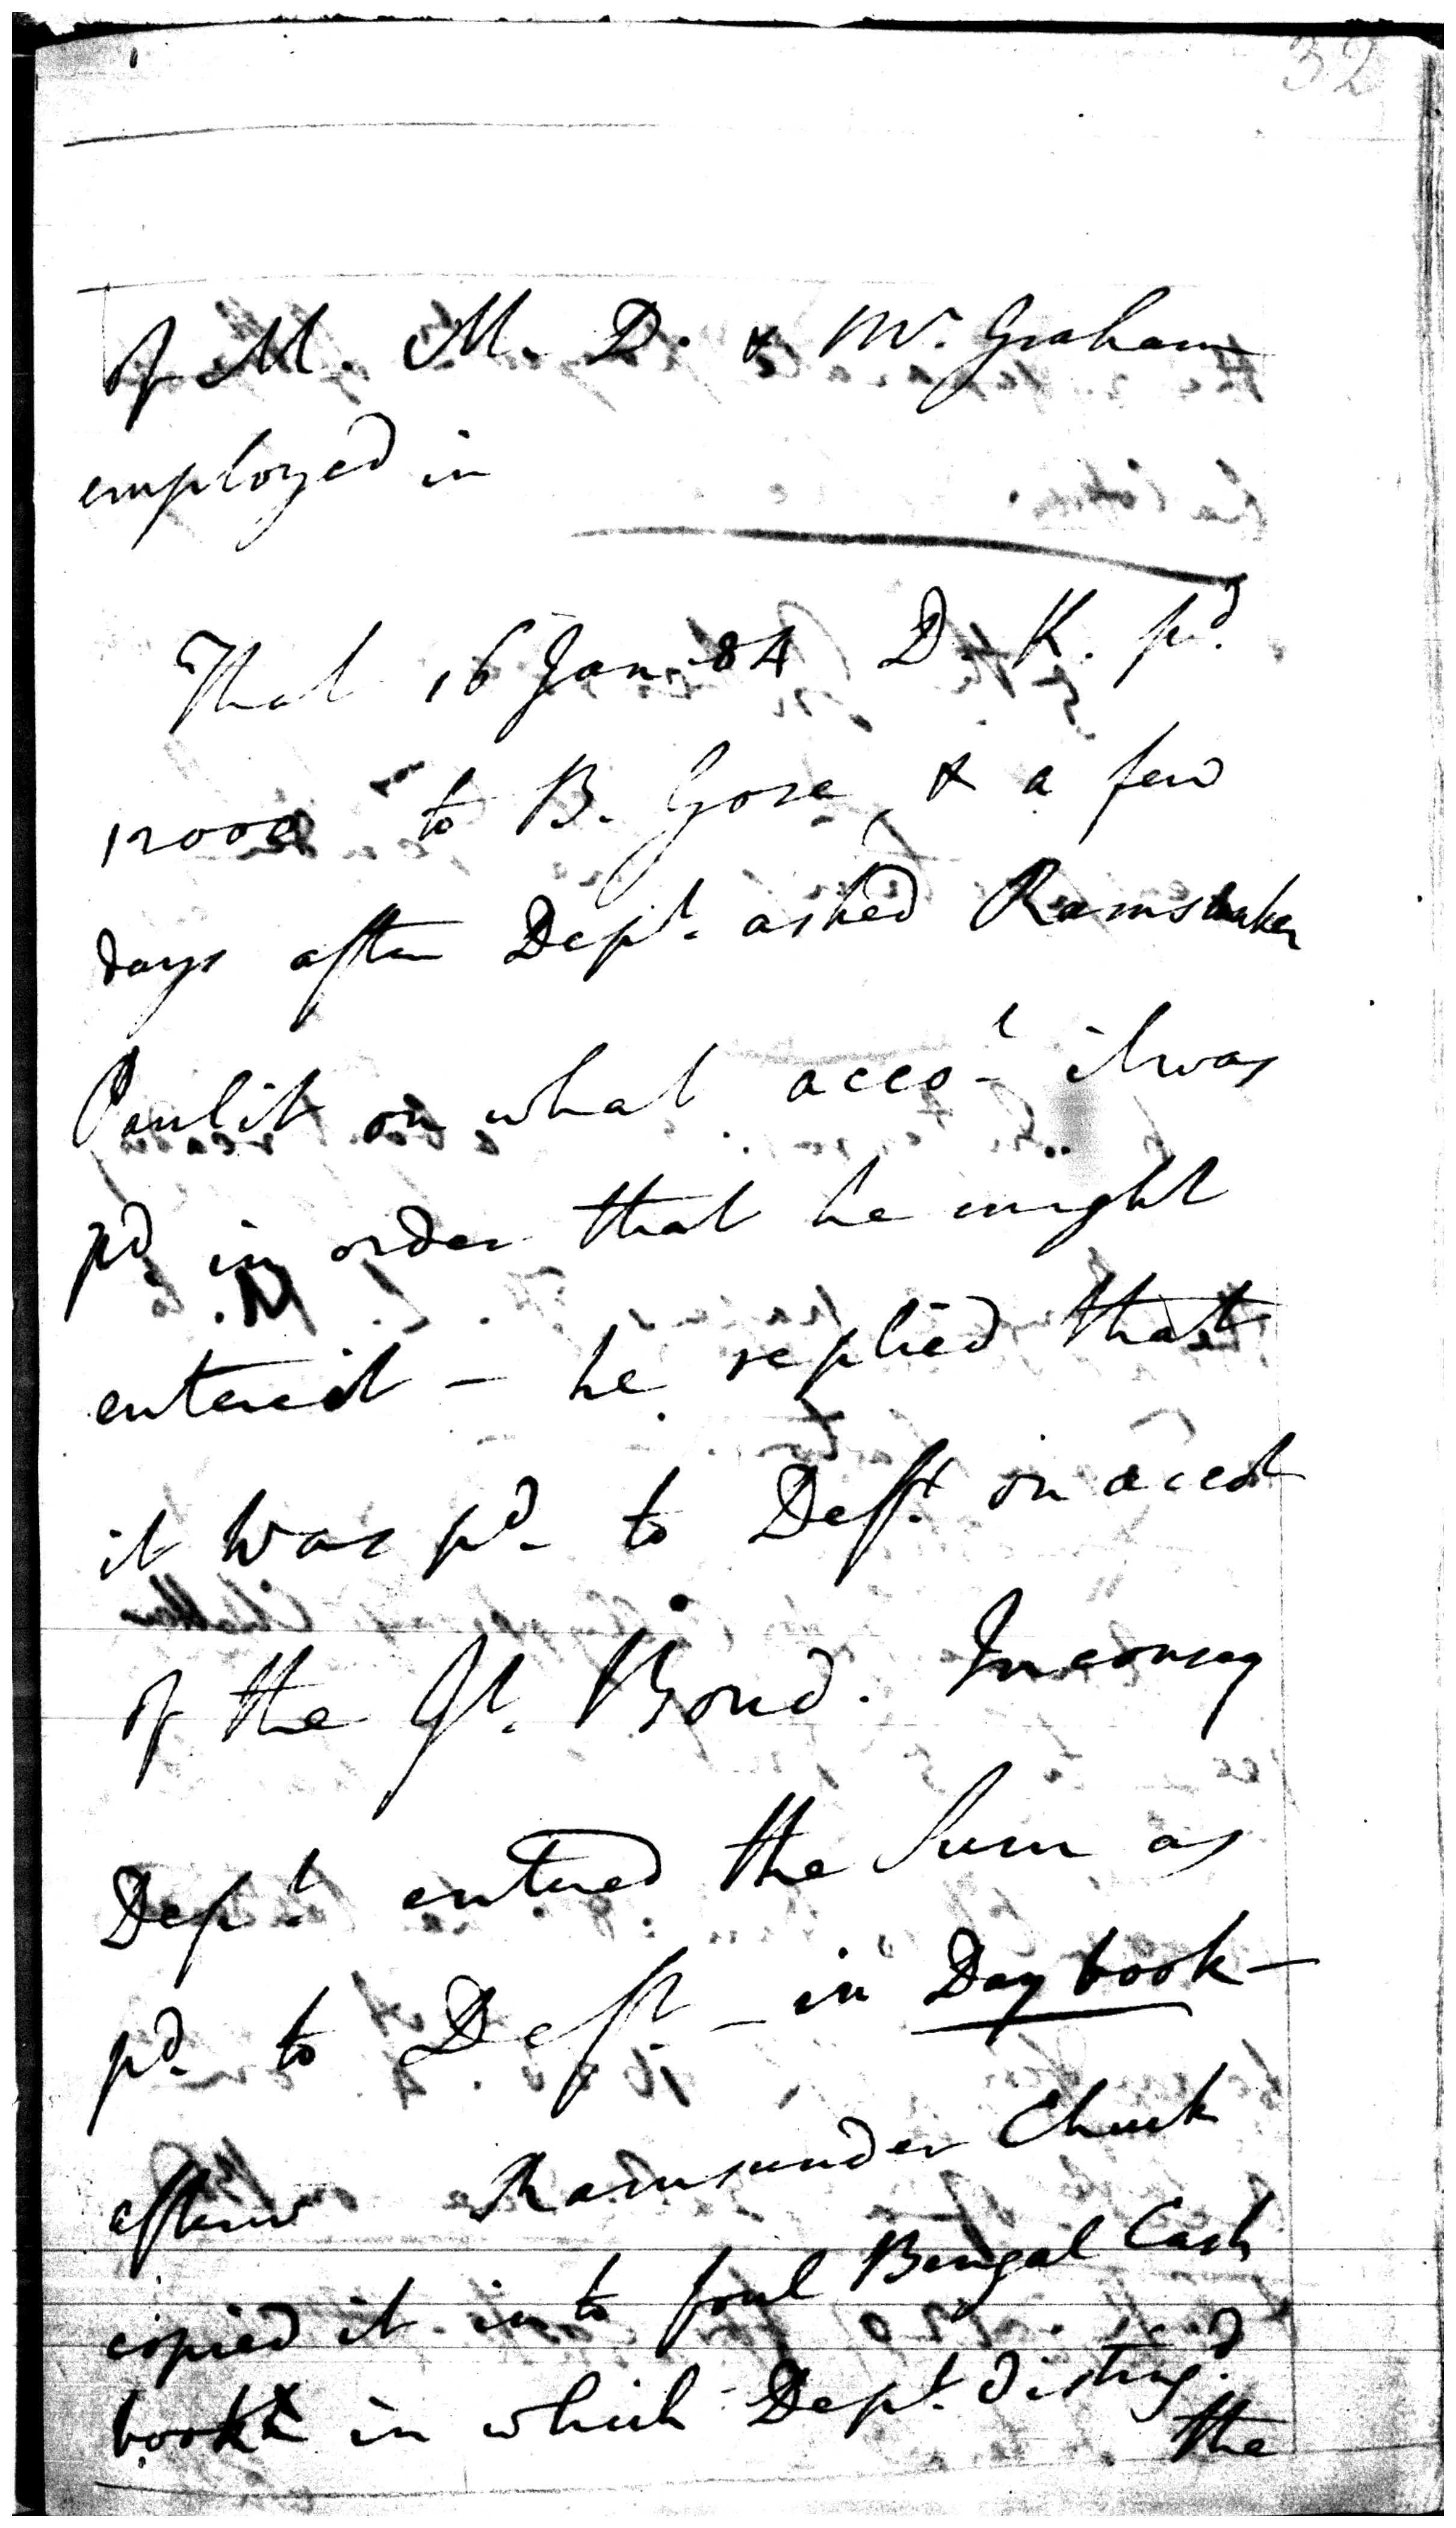 32
of M. M. D. & Mr. Graham
employed in
That 16 Jan 84 D. K. pd.
12000 to B. Gose, & a few
days after Dept. asked Ramsunker
Paulit on what acco.t it was
pd. in order that he might
enter it - he replied that
it was pd. to Deft. on acct
of the Jt. Bond. In conseq
Dept. entered the Sum as
pd. to Deft - in Day book -
afterw Ramsunder Chuck
copied it into foul Bengal Cash
book in which Dept. disting.d
the